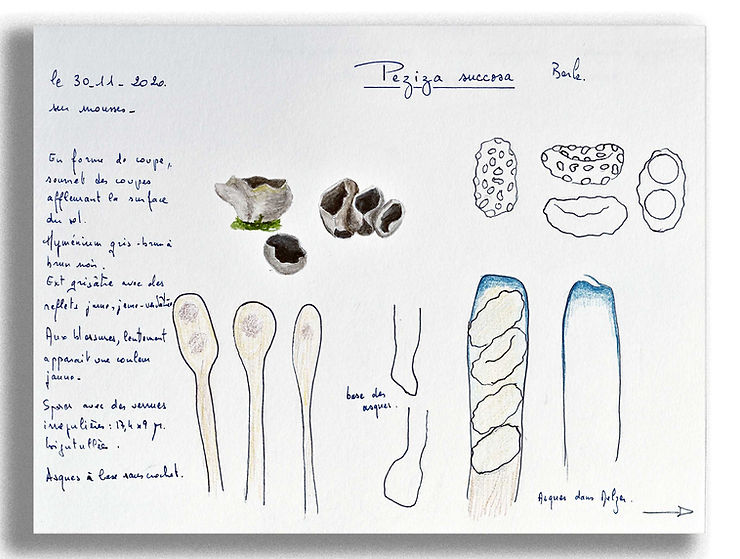 le 30_11_2020.
sur mousses_
Peziza succosa Berk.
En forme de coupe,
souvent des coupes
affleurant la surface
du sol.
Hyménium gris-brun à
brun noir.
Ext grisâtre avec des
reflets jaune, jaune-verdâtre
Aux blessures, lentement
apparait une couleur
jaune_
Spores avec des verrues
irrégulières : 17,4 x 9 µ.
biguttulées.
Asques à base sans crochet.
base des
asques.
Asques dans Melzer.